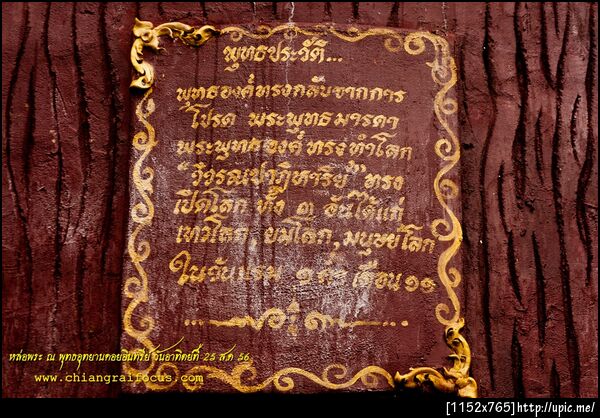 พุทธประวัติ...
พุทธองค์ทรงกลับจากการ
โปรด พระพุทธมารดา
พระพุทธองค์ ทรงทำโลก
"วิวรณปาฏิหาริย์" ทรง
เปิดโลก ทั้ง ๓ อันได้แก่
เทวโลก, ยมโลก, มนุษย์โลก
ในวันแรม ๑ เดือน ๑๑
หล่อพระ ณ พุทธอุทยานดอยอินทรีย์ วันอาทิตย์ที่ 25 ส.ค 56
www.chiangraifocus.com
[1152x765]http://upic.me/